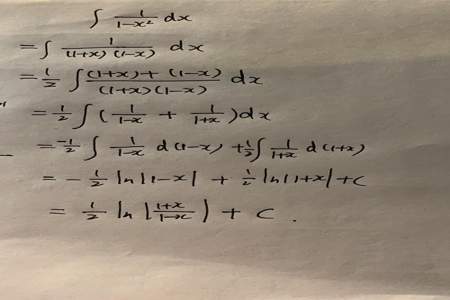 ∫ 1/(1-x²) dx
= ∫ 1/((1+x)(1-x)) dx
= 1/2 ∫ ((1+x)+(1-x))/((1+x)(1-x)) dx
= 1/2 ∫ (1/(1-x) + 1/(1+x)) dx
= -1/2 ∫ 1/(1-x) d(1-x) + 1/2 ∫ 1/(1+x) d(1+x)
= -1/2 ln|1-x| + 1/2 ln|1+x| + C
= 1/2 ln|(1+x)/(1-x)| + C.